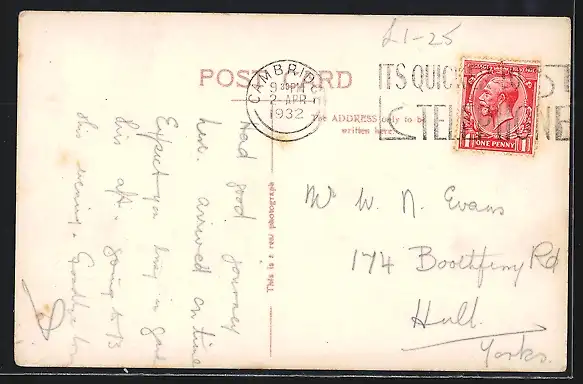 £1-25
POST CARD
CAMBRIDGE
9 30 PM
2 APR
1932
ITS QUICKER TO
TELEPHONE
ONE PENNY
The ADDRESS only to be
written here.
This is a real photograph
Had good journey
here. arrived on time
Expect you busy in
this aft. going to B
this evening.
Mr W. N. Evans
174 Boothferry Rd
Hull.
Yorks.